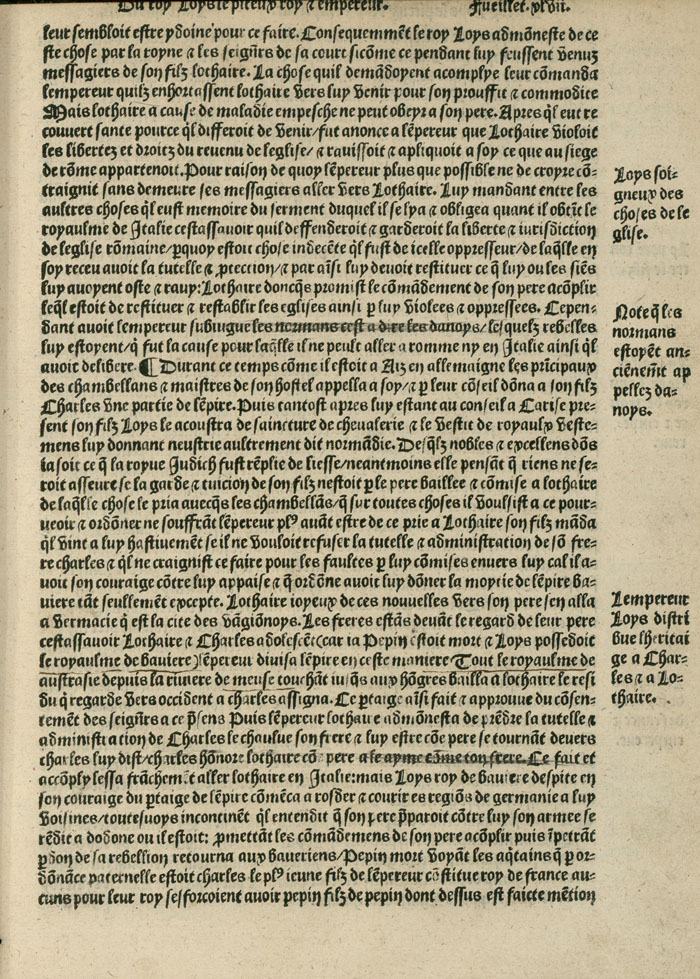 Du roy Loys le piteux roy ⁊ empereur. Fueillet. xlvii.
leur sembloit estre ydoine pour ce faire. Consequemmẽt le roy Loys admõneste de ce
ste chose par la royne ⁊ les seigñrs de sa court sicõme ce pendant luy feussent venuz
messagiers de son filz lothaire. La chose quil demãdoyent acomplye leur cõmanda
lempereur quilz enhortassent lothaire vers luy venir pour son prouffit ⁊ commodite
Mais lothaire a cause de maladie empesche ne peut obeyr a son pere. Apres ql̃ eut re
couvert sante pource ql̃ differoit de venir/fut anonce a lẽpereur que Lothaire violoit
les libertez et droitz du revenu de leglise/⁊ ravissoit ⁊ apliquoit a soy ce que au siege
de rõme appartenoit. Pour raison de quoy lẽpereur plus que possible ne de croyre cõ-
traignit sans demeure ses messagiers aller vers Lothaire. Luy mandant entre les
aultres choses ql̃ eust memoire du serment duquel il se lya ⁊ obligea quant il obtĩt le
royaulme de Italie cestassavoir quil deffenderoit ⁊ garderoit la liberte ⁊ iurisdiction
de leglise rõmaine/ꝑquoy estoit chose indecẽte ql̃ fust de icelle oppresseur/de laq̃lle en
soy receu avoit la tutelle ⁊ ꝓtection/⁊ par aĩsi luy devoit restituer ce q̃ luy ou les siẽs
luy avoyent oste ⁊ ravy: Lothaire doncq̃s promist le cõmãdement de son pere acõplir
leq̃l estoit de restituer ⁊ restablir les eglises ainsi ꝑ luy violees ⁊ oppressees. Cepen-
dant avoit lempereur subiugue les normans cest a dire les danoys/lesquelz rebelles
luy estoyent/q̃ fut la cause pour laq̃lle il ne peult aller a romme ny en Italie ainsi ql̃
avoit delibere. ¶ Durant ce temps cõme il estoit a Aiz en allemaigne les prĩcipaux
des chambellans ⁊ maistres de son hostel appella a soy/⁊ ꝑ leur cõseil dõna a son filz
Charles vne partie de lẽpire. Puis tantost apres luy estant au conseil a Carise pre-
sent son filz Loys le acoustra de saincture de chevalerie ⁊ le vestit de royaulx veste-
mens luy donnant neustrie aultrement dit normãdie. Desq̃lz nobles ⁊ excellens dõs
ia soit ce q̃ la royne Judich fust rẽplie de liesse/neantmoins elle pensãt q̃ riens ne se-
roit asseure se la garde ⁊ tuicion de son filz nestoit ꝑ le pere baillee ⁊ cõmise a lothaire
de laq̃lle chose le pria avecq̃s les chambellãs/q̃ sur toutes choses il voulsist a ce pour-
veoir ⁊ ordõner ne souffrãt lẽpereur plꝰ avãt estre de ce prie a Lothaire son filz mãda
ql̃ vint a luy hastivemẽt se il ne vouloit refuser la tutelle ⁊ administration de sõ fre-
re charles ⁊ ql̃ ne craignist ce faire pour les faultes ꝑ luy cõmises envers luy cal il a-
voit son couraige cõtre luy appaise ⁊ q̃ ordõne avoit luy dõner la moytie de lẽpire ba-
viere tãt seullemẽt excepte. Lothaire ioyeux de ces nouvelles vers son pere sen alla
a vermacie q̃ est la cite des vãgiõnoys. Les freres estãs devãt le regard de leur pere
cestassavoir Lothaire ⁊ Charles adolescẽt(car ia Pepin estoit mort ⁊ Loys possedoit
le royaulme de baviere)lẽpereur divisa lẽpire en ceste maniere Tout le royaulme de
austrasie depuis la riviere de meuse touchãt iusq̃s aux hõgres bailla a lothaire le resi
du q̃ regarde vers occident a charles assigna. Ce ꝑtaige aĩsi fait ⁊ approuve du cõsen-
temẽt des seigñrs a ce p̃sens Puis lẽpereur lothaire admõnesta de prẽdre la tutelle ⁊
administration de Charles le chaulve son frere ⁊ luy estre cõe pere se tournant devers
charles luy dist/charles hõnore lothaire cõe pere ⁊ le ayme cõme ton frere. Ce fait et
accõply lessa frãchemẽt aller lothaire en Italie:mais Loys roy de baviere despite en
son couraige du ꝑtaige de lẽpire cõmẽca a roder ⁊ courir es regiõs de germanie a luy
voisines/toutesvoys incontinẽt ql̃ entendit q̃ son pere p̃paroit cõtre luy son armee se
rẽdit a dodone ou il estoit: ꝓmettãt les cõmãdemens de son pere acõplir puis ĩpetrãt
ꝑdon de sa rebellion retourna aux baveriens/Pepin mort voyãt les aq̃tains q̃ ꝑ or-
dõnãce paternelle estoit charles le plꝰ ieune filz de lẽpereur cõstitue roy de france au-
cuns pour leur roy sefforcoient avoir pepin filz de pepin dont dessus est faicte mẽtion
Loys soi-
gneux des
choses de le
glise.
Note q̃ les
normans
estoyẽt an-
ciẽnemẽt ap
pellez da-
noys.
Lempereur
Loys distri
bue lheritai
ge a Char-
les ⁊ a Lo-
thaire.